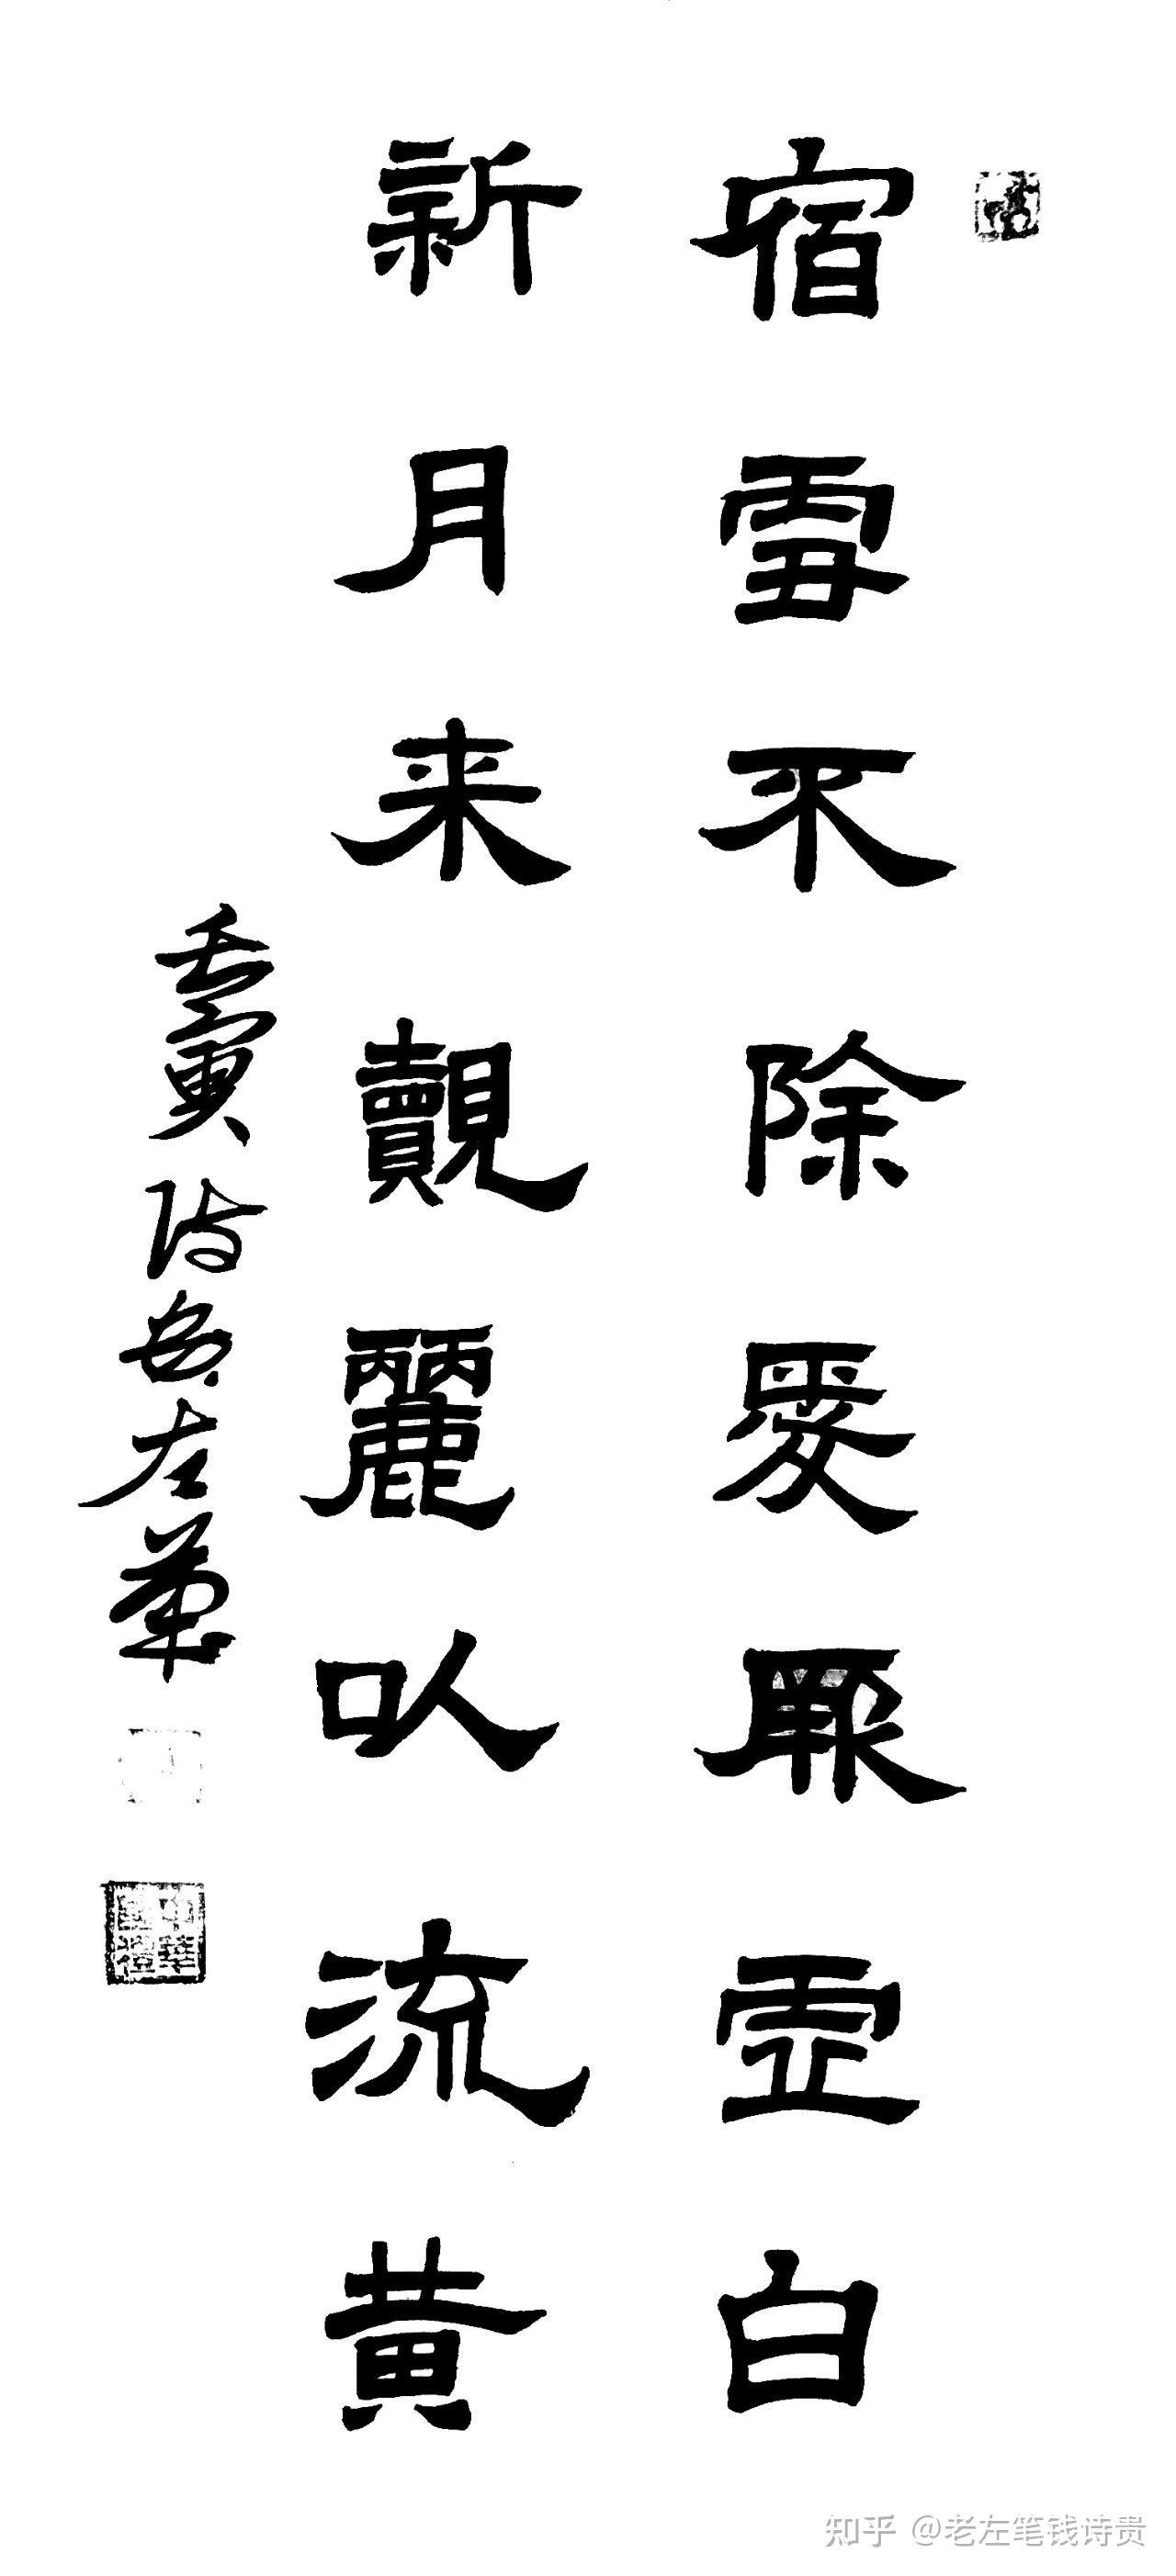 宿雪不除爰聚虚白
新月来覿麗以流黄
壬寅 左
知乎 @老左笔钱诗贵